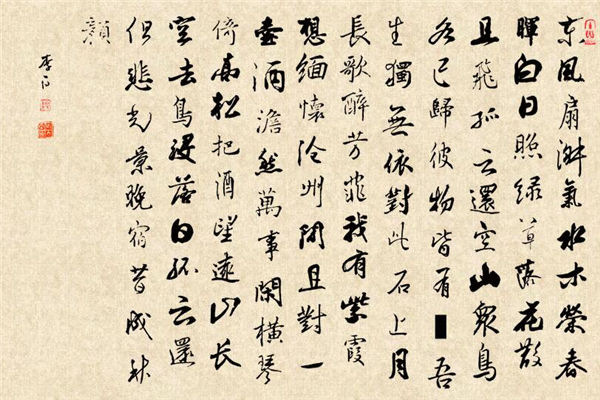 东風扇淑氣水木榮春
暉白日照绿草落花散
且飛孤云還空山衆鳥
各已歸彼物皆有吾
生獨無依對此石上月
長歌醉芳菲我有紫霞
想緬懷沧州間且對一
壷酒澹然萬事閑橫琴
倚高松把酒望遠山長
空去鳥没落日孤云還
但悲光景晚宿昔成秋
顔
李白